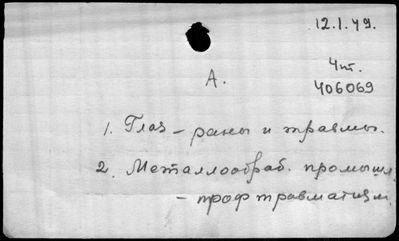 12.1.49.
Чт.
406069
А.
1. Глаз – раны и травмы.
2. Металлообраб. промышл.
– профтравматизм.